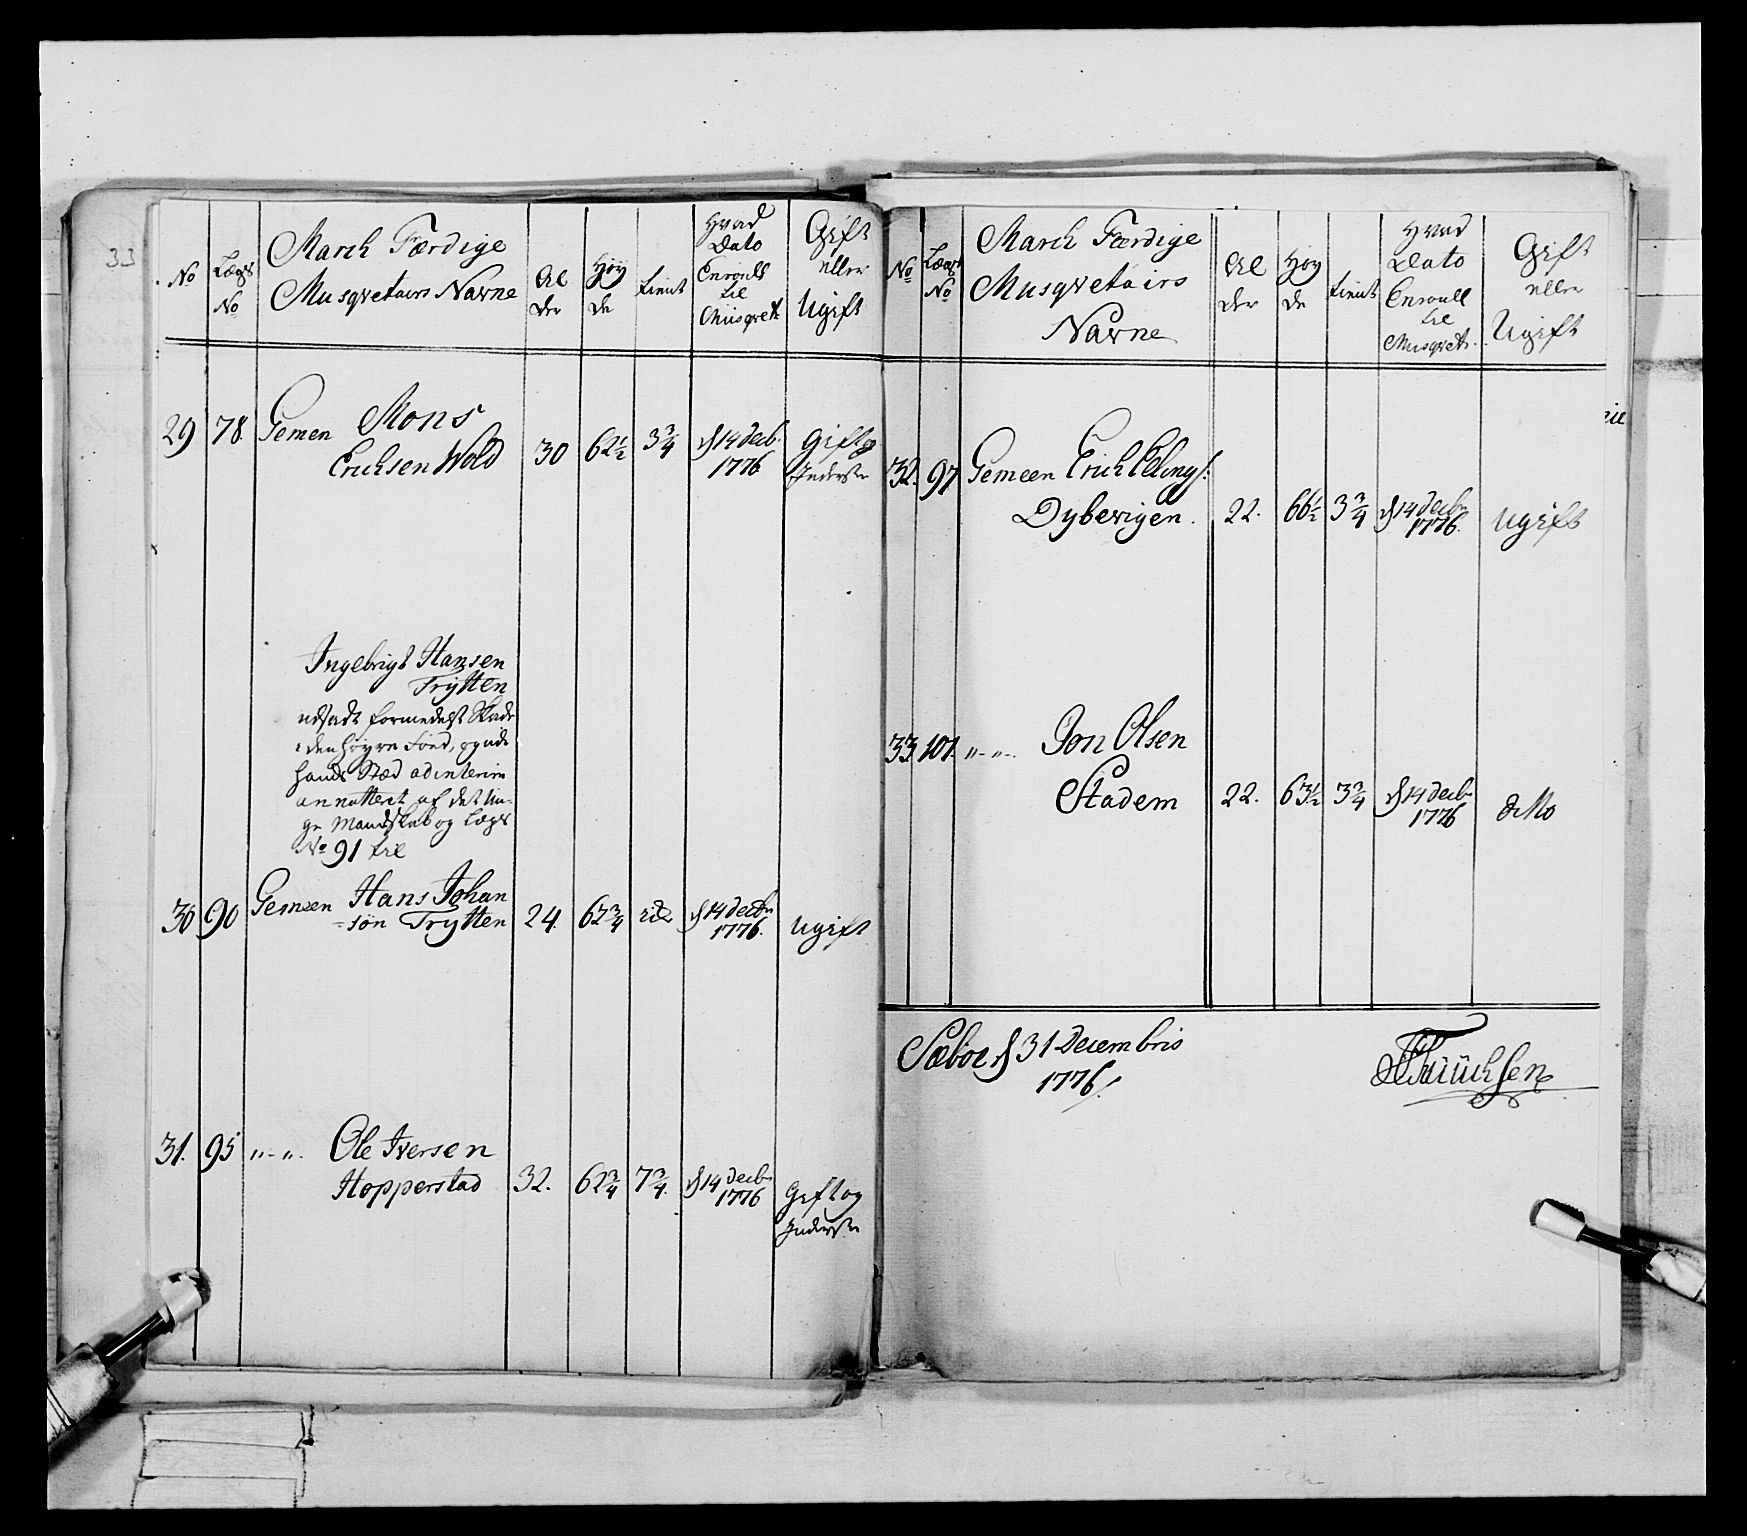 33
No
Lægs
No
March Færdige
Musqvetairs Navne
Al
der
Høy
de
tienst
Hvad
Dato
Enroull
til
Musqvet:
Gift
eller
Ugift
29 78 Gemen Mons
Erichsen Wold 30 62½ 3¾ d 14 decb. Gift og
1776 Inderste
Ingebrigt Hansen
Trÿtten
udsadt formedelst Skade
i den høyre Foed, og udi
hands Sted adinterim
annotteret af det Un-
ge Mandskab og Lægs
No 91 til
30 90 Gemeen Hans Johan
-søn Trÿtten 24. 62¾ d 14 decbr
1776. ugift
31. 95 "-". Ole Iversen
Hopperstad 32. 62¾ 7¾ d 14 decb.
1776 Gift og
Inderste
No
Lægs
No
March Færdige
Musqvetairs
Navne
Al
der
Høy
de
tienst
Hvad
Dato
Enroull
til
Musqvet:
Gift
eller
Ugift
32. 97 Gemeen Erich Ellings:
Dybevigen. 22. 66½ 3¾ d 14 decbr
1776. ugift
33 101. "-"-. Jon Olsen
Stadem 22. 63½ 3¾ d 14 decb.
1776 ditto
Sæbøe d 31 Decembris
1776/.